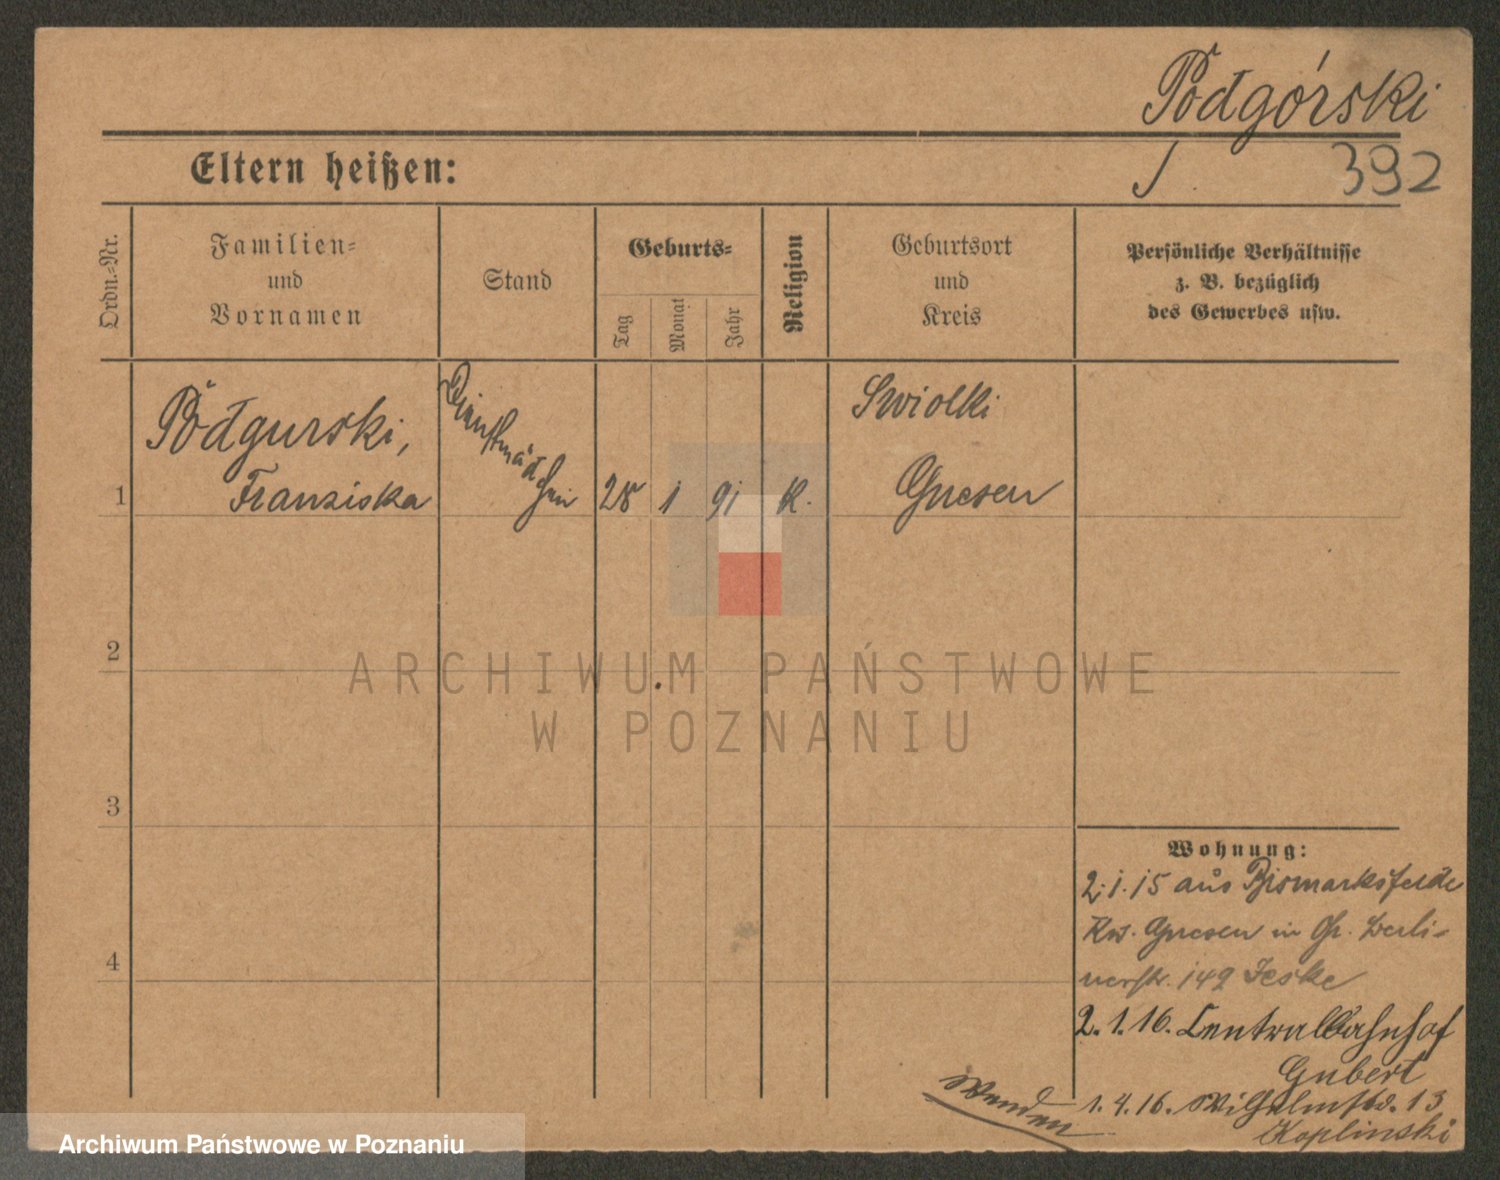 Podgórski
Eltern heißen:
392
Ordn.-Nr.
Familien-
und
Vornamen
Stand
Geburts-
Tag
Monat
Jahr
Religion
Geburtsort
und
Kreis
Persönliche Verhältnisse
z. B. bezüglich
des Gewerbes usw.
1
Podgurski,
Franziska
Dienstmädchen
28
1
91
K.
Swiolki
Gnesen
2
3
4
Wohnung:
2.1.15 aus Bismarksfelde
Krs. Gnesen in Gr. Berli-
nerstr. 149 Jeske
2.1.16. Centralbahnhof
Gubert
1.4.16. Wilhelmstr. 13
Koplinski
Wenden
ARCHIWUM PAŃSTWOWE
W POZNANIU
Archiwum Państwowe w Poznaniu